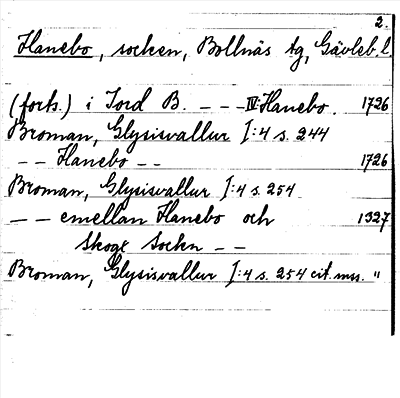 2.
Hanebo, socken, Bollnäs tg, Gävleb. l.
(forts.) i Tord B. – – – IV Hanebo. 1726
Broman, Glysisvallur I:4 s. 244
– – Hanebo – – 1726
Broman, Glysisvallur I:4 s. 254
– – emellan Hanebo och 1327
Skogx Sockn – –
Broman, Glysisvallur I:4 s. 254 cit. mss. "